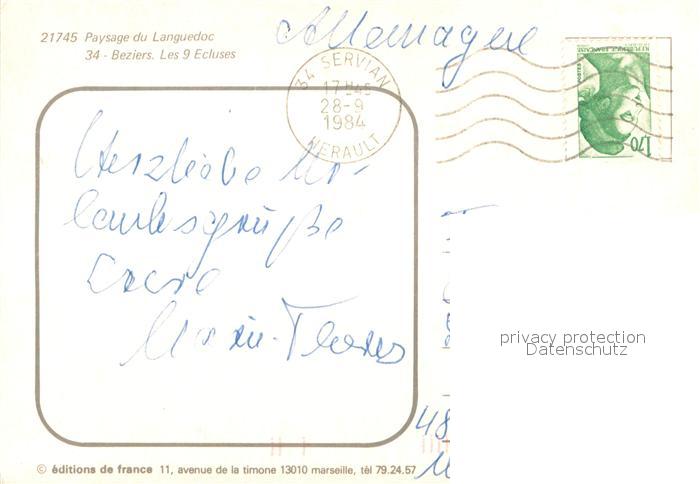 21745 Paysage du Languedoc
34 - Beziers. Les 9 Ecluses
Allemagne
34 SERVIAN
17H45
28-9
1984
HERAULT
REPUBLIQUE FRANÇAISE
POSTES
1,70
Herzliche Ur-
laubsgrüße
Eure
privacy protection
Datenschutz
48
© éditions de france 11, avenue de la timone 13010 marseille, tèl 79.24.57